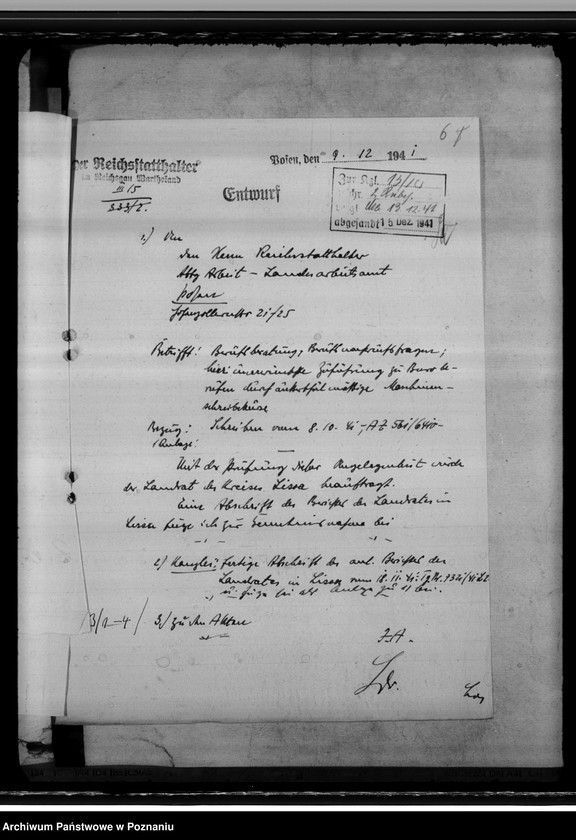 67
Der Reichsstatthalter
im Reichsgau Wartheland
III/5
Posen, den 9. 12. 1941
Entwurf
Zur Kzl. 13/12
abgesandt 15. DEZ. 1941
1.) An
den Herrn Reichsstatthalter
Abtg Arbeit – Landesarbeitsamt
Posen
Hohenzollernstr 21/25
Betrifft: Berufsberatung, Berufsnachwuchsfragen;
hier: unerwünschte Zuführung zu Büro be-
rufen durch unterrichtsmäßige Maschinen-
schreibkurse
Bezug: Schreiben vom 8. 10. 41 – AZ 561/6410 –
1 Anlage:
Mit der Prüfung dieser Angelegenheit wurde
der Landrat des Kreises Lissa beauftragt.
Eine Abschrift des Berichts des Landrates in
Lissa füge ich zur Kenntnisnahme bei
2.) Kanzlei: fertige Abschrift des anl. Berichtes des
Landrates in Lissa vom 18. 11. 41
u. füge sie als Anlage zu 1) bei.
3.) Zu den Akten
I.A.
Archiwum Państwowe w Poznaniu